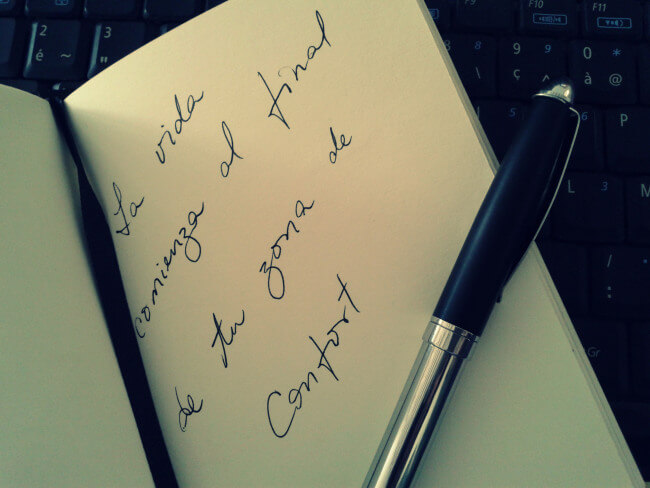 F10
F11
2
é ~
3
8
9 9
ç ^
0 *
à @
\
P
L 3
M
/
Gr
La vida
comienza al final
de tu zona de
Confort